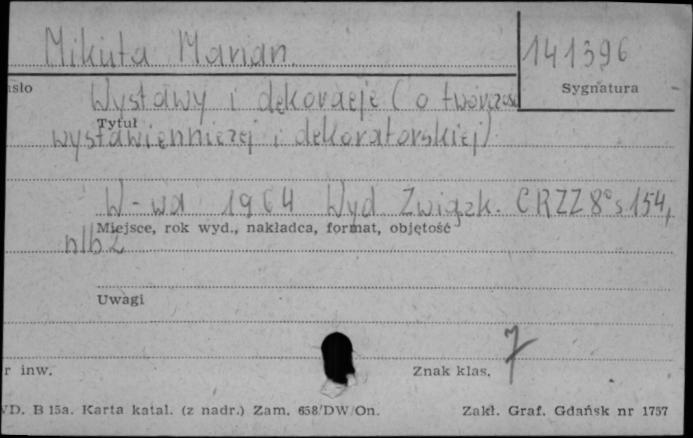 Mikuta Marian.
141396
Sygnatura
Wystawy i dekoracje (o twórczości
Tytuł
wystawienniczej i dekoratorskiej)
W-wa 1964 Wyd. Związk. CRZZ 8° s 154,
Miejsce, rok wyd., nakładca, format, objętość
nlb 2
Uwagi
7
r inw.
Znak klas.
D. B 15a. Karta katal. (z nadr.) Zam. 658/DW/On.
Zakł. Graf. Gdańsk nr 1757